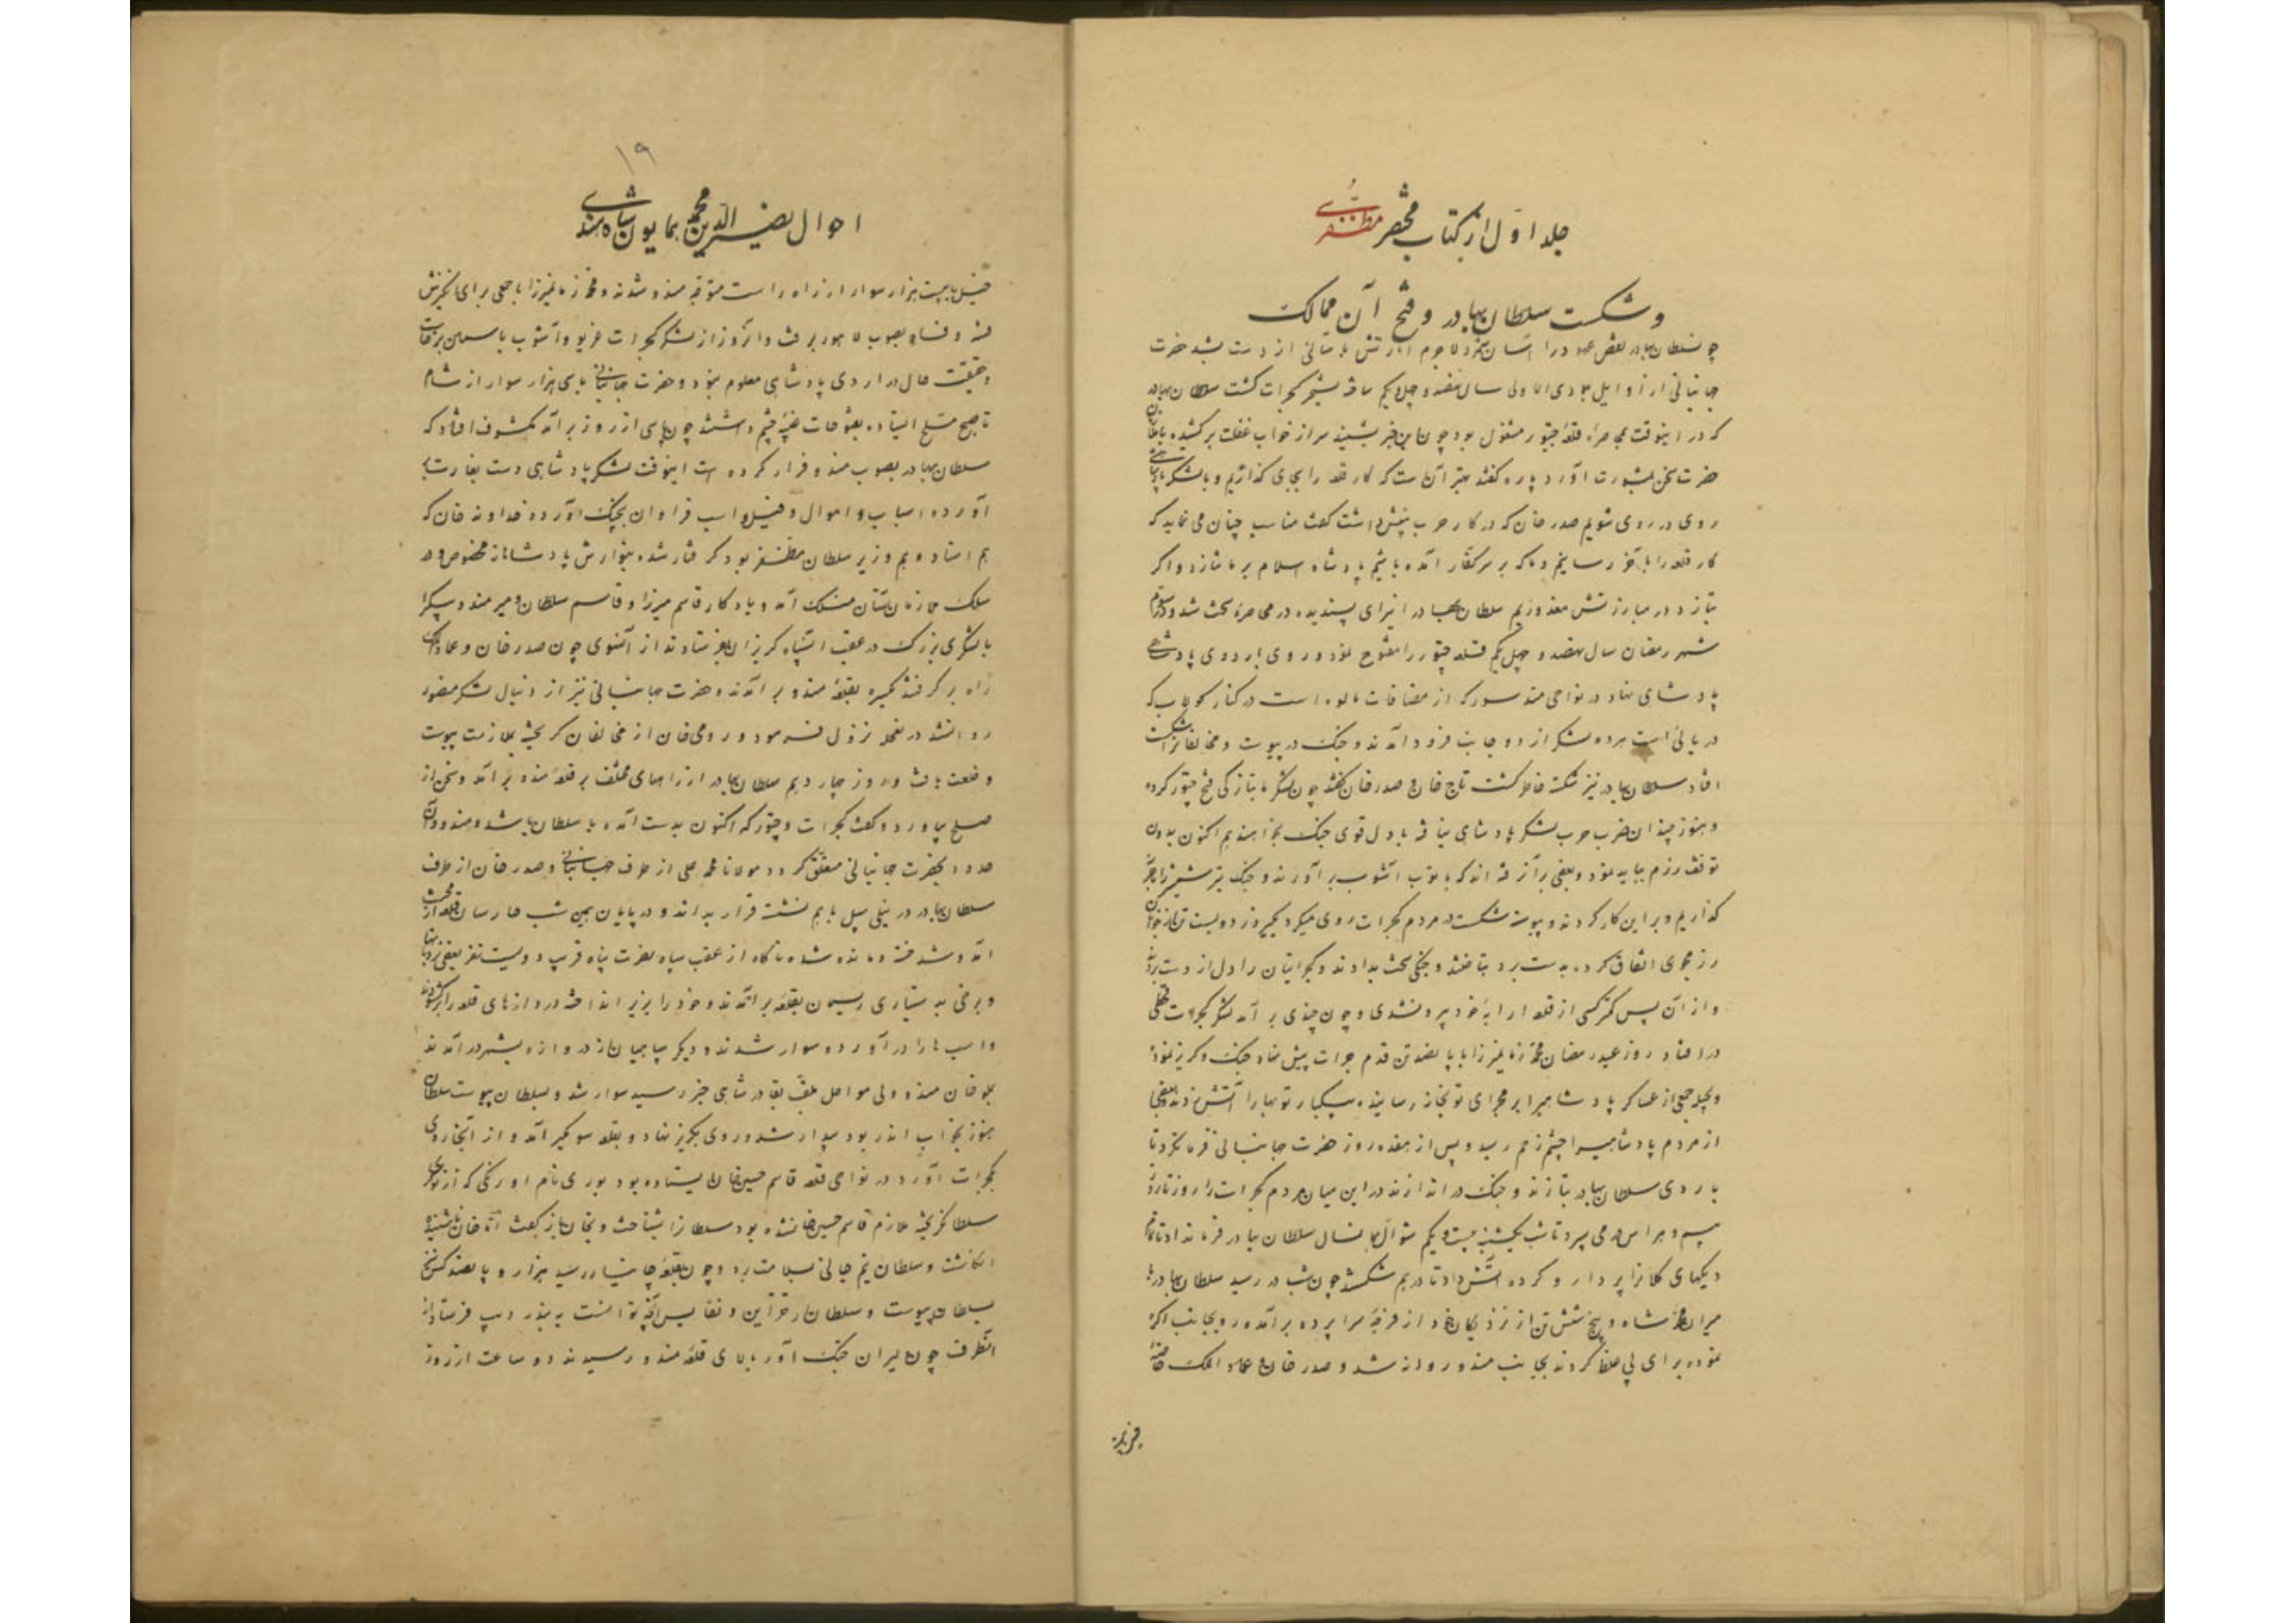 جلد اوّل از کتاب مختصر مظفّری
و شکست سلطان بهادر و فتح آن ممالک
چون سلطان بهادر نقض عهد را آسان شمرد لاجرم از آتش بلا شد حضرت
جهانبانی در اوایل جمادی الاولی سال نهصد و چهل و یکم گجرات گشت سلطان بهادر
که در اینوقت بمحاصره قلعه چیتور مشغول بود چون این خبر بشنید سر از خواب غفلت برکشیده با
حضرت سخن بمشورت آورد پاره گفتند بهتر آن است که کار قلعه را بجای گذاریم و با لشکر
روی در روی شویم صدر خان که در کار حرب بینش داشت گفت مناسب چنان می نماید که
کار قلعه را بآخر رسانیم و ما که بر سر کفّار آمده باشیم پادشاه اسلام بر ما نتازد و اگر
بتازد در مبارزتش معذوریم سلطان بهادر اینرای پسندیده در محاصره سخت شد و سوّم
شهر رمضان سال نهصد و چهل یکم قلعه چیتور را مفتوح نمود و روی باردوی پادشاهی
پادشاهی نهاد در نواحی مندسور که از مضافات مالوه است در کنار کولاب که
دریائی است هر دو لشکر از دو جانب فرود آمدند و جنگ در پیوست و مخالفانرا شکست
افتاد سلطان بهادر نیز شکسته خاطر گشت تاج خان و صدر خان گفتند چون لشکر ما بتازگی فتح چیتور کرده
و هنوز چندان ضرب حرب لشکر پادشاهی نیافته با دل قوی جنگ بخواهند هم اکنون بدون
توقف رزم بباید نمود و بعضی بر آن رفته اند که با توپ آشوب برآورند و جنگ تیر شمشیر را
گذاریم و بر این کار کردند و پیوسته شکست در مردم گجرات روی میکرد یکروز دویست تن از
رزمجوی اتفاق کرده بدست برد بتاختند و جنگی سخت بدادند و گجراتیان را دل از دست
و از آن پس کمتر کسی از قلعه ارابهٔ خود بیرون شدی و چون چندی بر آمد لشکر گجرات قحطی
در افتاد روز عید رمضان محمد زمان میرزا با پانصد تن قدم جرات پیش نهاد جنگ و گریز نموده
و بحیله جمعی از عساکر پادشاهی را برابر مجرای توپخانه رسانیده بیکبار توپها را آتش زدند
از مردم پادشاهی را چشم زخم رسید و پس از هفده روز حضرت جهانبانی فرمان کرد تا
باردوی سلطان بهادر بتازند و جنگ در اندازند در این میان مردم گجرات را روز تا روز
بیم و هراس همی سپرد تا شب یکشنبه بیست و یکم شوال همانسال سلطان بهادر فرمان داد تا تمام
دیگهای کلان را پر دارو کرده آتش داد تا در هم شکستند چون شب در رسید سلطان بهادر با
میران محمد شاه و پنج شش تن از نزدیکان خود از فرجهٔ سرا پرده بر آمده رو بجانب اگره
نموده برای پی غلط کردند بجانب مندو روانه شد و صدر خان و عماد الملک خاصه
۱۹
احوال نصیر الدین محمد همایون پادشاه هند
خیل با بیست هزار سوار از راه راست متوجه مندو شدند و محمد زمان میرزا با جمعی برای انگیزش
فتنه و فساد بصوب لاهور برفت و آنروز از لشکر گجرات غریو و آشوب بآسمان برخاست
و حقیقت حال در اردوی پادشاهی معلوم نبود و حضرت جهانبانی با سی هزار سوار از شام
تا صبح مسلح ایستاده بفتوحات غیبیه چشم داشتند چون پاسی از روز بر آمد مکشوف افتاد که
سلطان بهادر بصوب مندو فرار کرده است اینوقت لشکر پادشاهی دست بغارت بر
آورده اسباب و اموال و فیل و اسب فراوان بچنگ آورده خداوند خان که
هم استاد و هم وزیر سلطان مظفّر بود گرفتار شده بنوازش پادشاهانه مخصوص و در
سلک ملازمان آستان منسلک آمد و یادگار قاسم میرزا و قاسم سلطان و میر هندو بیک را
با لشکری بزرگ در عقب آنسپاه گریزان بفرستادند از آنسوی چون صدر خان و عماد الملک
راه بر گرفتند یکسره بقلعهٔ مندو بر آمدند و حضرت جهانبانی نیز از دنبال لشکر منصور
روانشد در نعلچه نزول فرمود و رومی خان از مخالفان گریخته بملازمت پیوست
و خلعت یافت و روز چهاردهم سلطان بهادر از راههای مختلف بر قلعهٔ مندو بر آمد و سخن از
صلح بیاورد و گفت گجرات و چیتور که اکنون بدست آمده با سلطان باشد و مندو و آن
حدود بحضرت جهانبانی متعلّق گردد مولانا محمد علی از طرف جهانبانی و صدر خان از طرف
سلطان بهادر در نیلی سبیل با هم نشسته قرار بدادند و در پایان همین شب حارسان قلعه از
آمد و شد خسته و مانده شده ناگاه از عقب سپاه نصرت پناه قریب دویست نفر بعضی
و برخی به دستیاری ریسمان بقلعه بر آمدند و خود را بزیر انداخته دروازهای قلعه را
و اسب ها را در آورده سوار شدند و دیگر سپاهیان از دروازه بشهر در آمدند
ملو خان مندو ولی مواصل ملقّب بقادر شاهی خبر رسید سوار شد و بسلطان پیوست سلطان
هنوز بخواب اندر بود بیدار شد و روی بگریز نهاد و بقلعه سونگیر آمد و از آنجا روی
بگجرات آورد در نواحی قلعه قاسم حسین خان ایستاده بود بوری نام اوزبکی که از نوکری
سلطان گریخته ملازم قاسم حسین خان شده بود سلطان را بشناخت و بخان باز گفت اما خان ناشنیده
انگاشت و سلطان نیم جانی بسلامت برد و چون بقلعهٔ چانپانیر رسید هزار و پانصد کس
بسلطان پیوست و سلطان خزاین و نفایس آنچه توانست به بندر دیپ فرستاد از
آنطرف چون دلیران جنگ آور ببالای قلعهٔ مندو رسیدند دو ساعت از روز